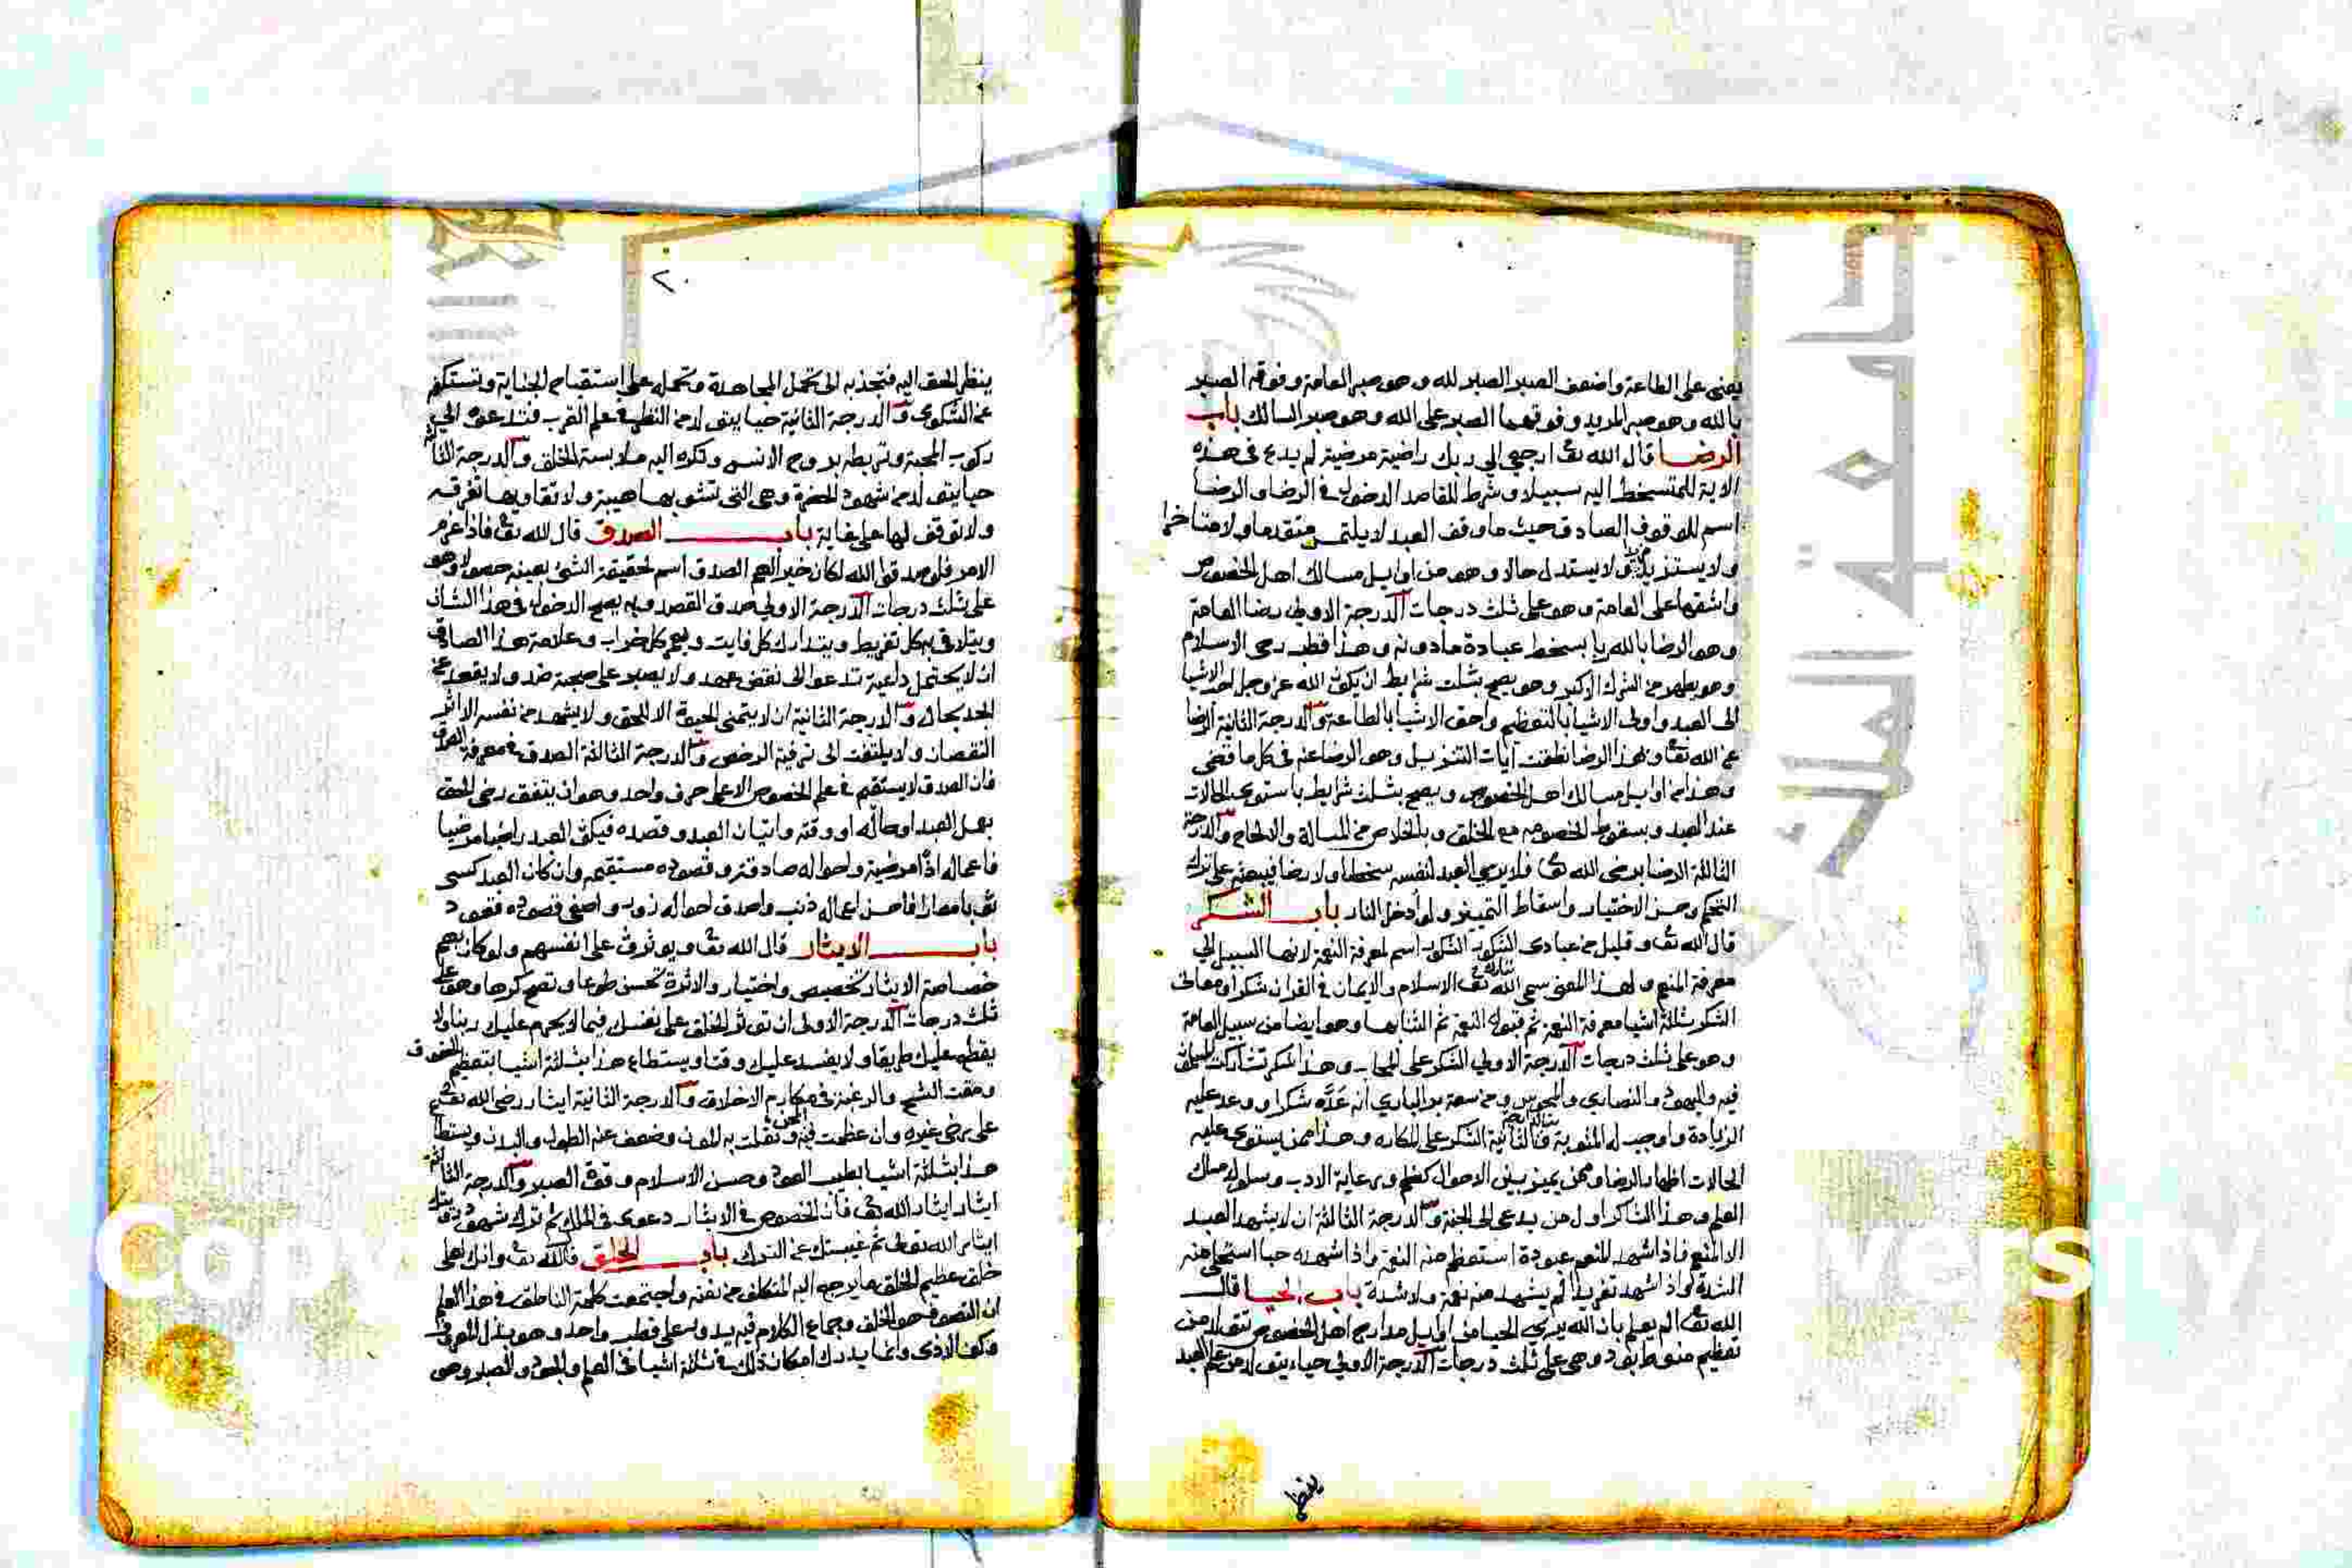 يعنى على الطاعة واضعف الصبر الصبر لله وهو صبر العامة وفوقه الصبر
بالله وهو صبر المريد وفوقهما الصبر على الله وهو صبر السالك باب
الرضا قال الله تعا ارجعي الي ربك راضية مرضية لم يدع في هذه
الاية للمتسخط اليه سبيلا وشرط للقاصد الدخول في الرضا والرضا
اسم للوقوف الصادق حيث ما وقف العبد لا يلتمس متقدما ولا متاخرا
ولا يستزيد ولا يستبدل حالا وهو من اوايل مسالك اهل الخصوص
واشقها على العامة وهو على ثلث درجات الدرجة الاولى رضا العامة
وهو الرضا بالله ربا بسخط عبادة ما دونه وهذا قطب رحى الاسلام
وهو يطهر من الشرك الاكبر وهو يصح بثلث شرايط ان يكون الله عز وجل احب الاشيا
الى العبد واولى الاشيا بالتعظيم واحق الاشيا بالطاعة والدرجة الثانية الرضا
عن الله تعا وبهذا الرضا نطقت آيات التنزيل وهو الرضا عنه في كل ما قضى
وهذا من اوايل مسالك اهل الخصوص ويصح بثلث شرايط باستوى الحالات
عند العبد وبسقوط الخصومة مع الخلق وبالخلاص من المسالة والالحاح والدرجة
الثالثة الرضا برضى الله تعا فلا يرى العبد لنفسه سخطا ولا رضا فيبعثه على ترك
التحكم وحسم الاختيار واسقاط التمييز ولو أدخل النار باب الشكر
قال الله تعا وقليل من عبادى الشكور الشكر اسم لمعرفة النعمة لانها السبيل الى
معرفة المنعم ولهذا المعنى سمى الله تعا الاسلام والايمان في القران شكرا ومعانى
الشكر ثلثة اشيا معرفة النعمة ثم قبول النعمة ثم الثنا بها وهو ايضا من سبيل العامة
وهو على ثلث درجات الدرجة الاولى الشكر على المحاب وهذا الشكر تشاركت المسلمون
فيه واليهود والنصارى والمجوس ومن سعة بر البارى أنه عَدَّه شكرا ووعد عليه
الزيادة واوجب له المثوبة والثانية الشكر على المكاره وهذا ممن يستوى عليه
الحالات اظهار الرضا وممن يميز بين الاحوال كظم ورعاية الادب وسلوك مسلك
العلم وهذا الشاكر اول من يدعى الى الجنة والدرجة الثالثة ان لا يشهد العبد
الا المنعم فاذا شهد المنعم عبودة استعظم منه النعمة واذا شهده حبا استحلى منه
الشدة واذا شهد تفريدا لم يشهد منه نعمة ولا شدة باب الحيا قال
الله تعا الم يعلم بان الله يرى الحيا من اوايل مدارج اهل الخصوص يتولد من
تعظيم منوط بود وهى على ثلث درجات الدرجة الاولى حياء يتولد من علم العبد
ينظر
٢٠
ينظر الحق اليه فتجذبه الى تحمل المجاهدة وتحمله على استقباح الجناية وتستكفه
عن الشكوى والدرجة الثانية حيا يتولد من النظر في علم القرب فتدعوه الى
ركوب المحبة وتربطه بروح الانس وتكره اليه ملابسة الخلق والدرجة الثالثة
حيا يتولد من شهود الحضرة وهى التى تشوبها هيبة ولا تقاويها تفرقه
ولا توقف لها على غاية باب الصدق قال الله تعا فاذا عزم
الامر فلو صدقوا الله لكان خيرا لهم الصدق اسم لحقيقة الشئ بعينه حصولا وهو
على ثلث درجات الدرجة الاولى صدق القصد وبه يصح الدخول في هذا الشان
ويتلافى به كل تفريط ويتدارك كل فايت ويعمر كل خراب وعلامة هذا الصادق
ان لا يحتمل داعية تدعوا الى نقض عهد ولا يصبر على صحبة ضد ولا يقعد عن
الجد بحال والدرجة الثانية ان لا يتمنى الحيوة الا للحق ولا يشهد من نفسه الا اثر
النقصان ولا يلتفت الى ترفية الرخص والدرجة الثالثة الصدق في معرفة الصدق
فان الصدق لا يستقيم في علم الخصوص الا على حرف واحد وهو ان يتفق رضى الحق
بعمل العبد او حاله او وقته واتيان العبد وقصده فيكون العبد راضيا مرضيا
فاعماله اذًا مرضية واحواله صادقة وقصوده مستقيمة وان كان العبد كسى
ثوبا معارا فاحسن اعماله ذنب واصدق احواله زور واصفى قصوده قعود
باب الايثار قال الله تعا ويوثرون على انفسهم ولو كان بهم
خصاصة الايثار تخصيص واختيار والاثرة تحسن طوعا وتصح كرها وهو على
ثلث درجات الدرجة الاولى ان تؤثر الخلق على نفسك فيما لا يحرم عليك دينا ولا
يقطع عليك طريقا ولا يفسد عليك وقتا ويستطاع هذا بثلثة اشيا بتعظيم الحقوق
ومقت الشح والرغبة في مكارم الاخلاق والدرجة الثانية ايثار رضى الله تعا
على رضى غيره وان عظمت فيه المحن وثقلت به المؤن وضعف عنه الطول والبدن ويستطاع
هذا بثلثة اشيا بطيب العود وحسن الاسلام وقوة الصبر والدرجة الثالثة
ايثار ايثار الله تعا فان الخصوص في الايثار دعوى في الملك ثم ترك شهود رؤيتك
ايثار الله تعالى ثم غيبتك عن الترك باب الخلق قال الله تعا وانك لعلى
خلق عظيم الخلق ما يرجع اليه المتكلف من نعته واجتمعت كلمة الناطق في هذا العلم
ان التصوف هو الخلق وجماع الكلام فيه يدور على قطب واحد وهو بذل المعروف
وكف الاذى وانما يدرك امكان ذلك في ثلثة اشيا في العلم والجود والصبر وهو